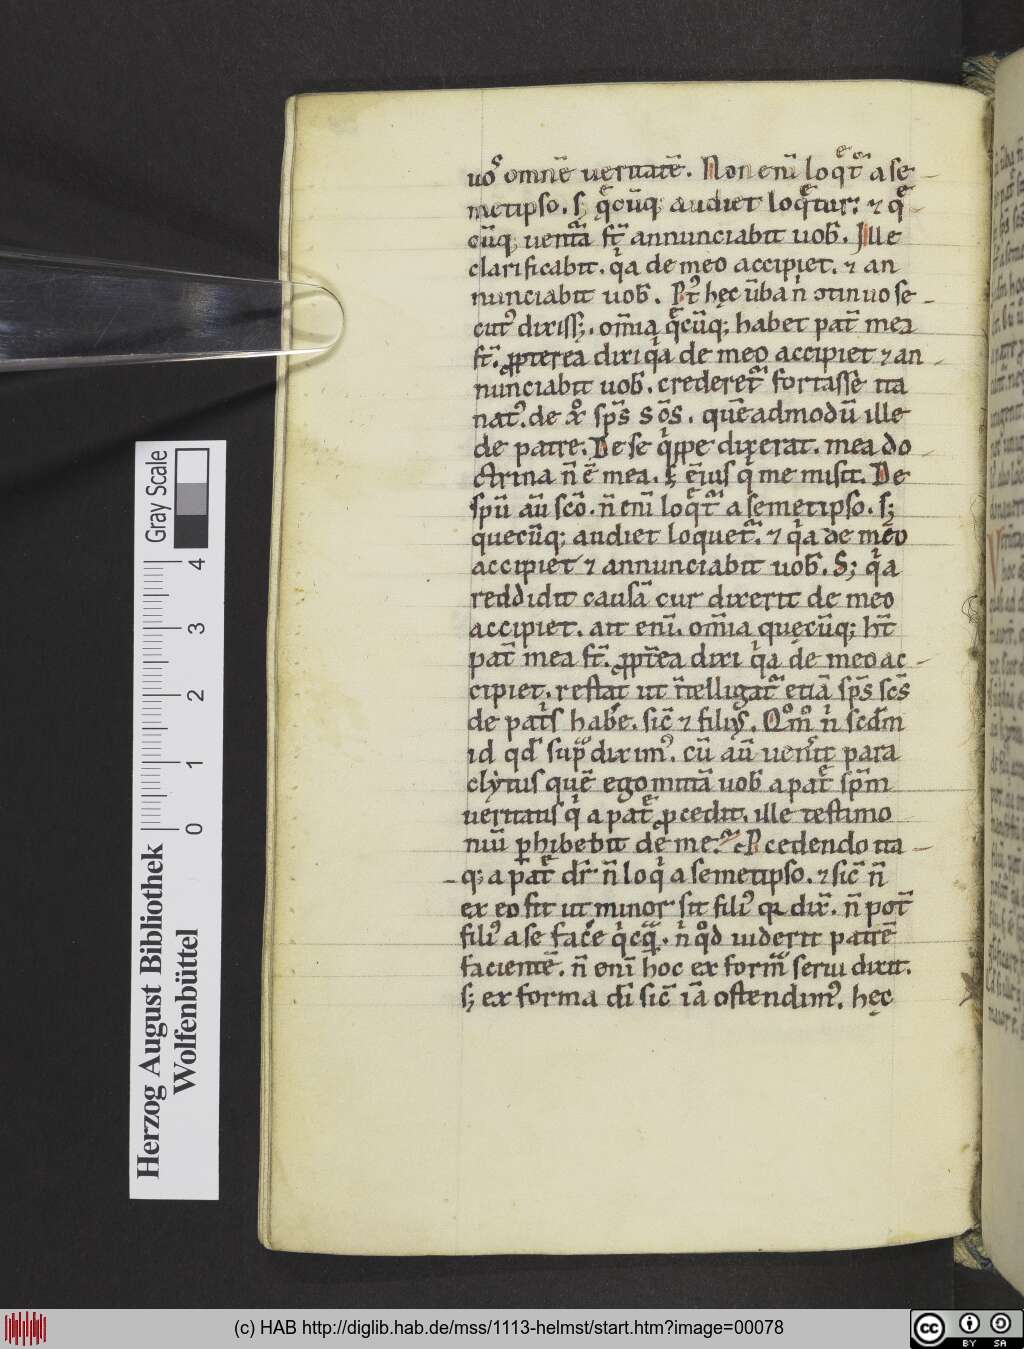 uoſ omnē ueritatē. Non enī loq̄t᷑ a se
metipso. sꝫ q̄cūqꝫ audiet loq̄tur. ⁊ q̄
cūqꝫ uent᷑a st᷑ annunciabit uob̄. Ille
clarificabit. qͥa de meo accipiet. ⁊ an
nunciabit uob̄. P̄t hęc ūba n̄ ↄtinuo se
cut᷒ dixisſꝫ. om̄ia q̄cūqꝫ habet pat̄ mea
st᷑. ꝓpterea dixi qͥa de meo accipiet ⁊ an
nunciabit uob̄. crederet᷑ fortasse ita
nat᷒. de xͦ sp̄s sc̄s. quēadmodū ille
de patre. De se qͥppe dixerat. mea do
ctrina n̄ ē mea. sꝫ ei᷒ qͥ me misit. De
spū aū scō. n̄ enī loq̄t᷑ a semetipso. sꝫ
quecūqꝫ audiet loquet᷑. ⁊ qͥa de meo
accipiet ⁊ annunciabit uob̄. Sꝫ qͥa
reddidit causā cur dixerit de meo
accipiet. ait enī. om̄ia quęcūqꝫ ht̄
pat̄ mea st᷑. ꝓpt̄ea dixi qͥa de meo ac
cipiet. restat ut n̄telligat᷑ etiā sp̄s sc̄s
de pat̄s habe. sic̄ ⁊ fili᷒. Qͦmͦ n̄ scdm
id qd̄ supͣ dixim᷒. cū aū uenͥit para
clytus quē ego mittā uob̄ a pat̄ sp̄m
ueritatis qͥ a pat̄ ꝓcedit. ille testimo
niū ꝑhibebit de me. Pcedendo ita
qꝫ a pat̄ dr̄ n̄ loqͥ a semetipso. ⁊ sic̄ n̄
ex eo fit ut minor sit fili᷒ qꝛ dix̄. n̄ pot̄
fili᷒ a se face qͥcqͣ. n̄ qͦd uiderit patrē
facientē. n̄ enī hoc ex form̄ serui dixit.
sꝫ ex forma dī sic̄ iā ostendim᷒. hęc
Gray Scale
4
3
2
1
0
Herzog August Bibliothek
Wolfenbüttel
(c) HAB http://diglib.hab.de/mss/1113-helmst/start.htm?image=00078
cc BY SA